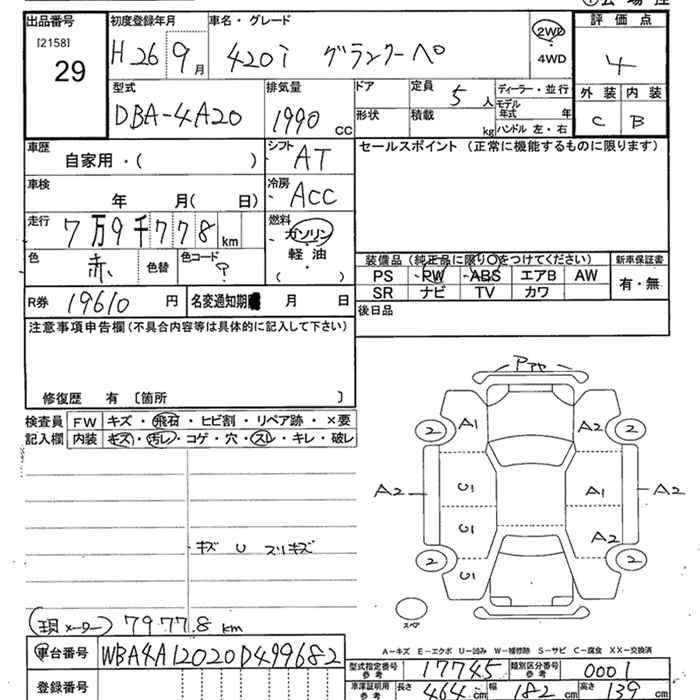 出品番号
[2158]
29
初度登録年月
H 26 9 月
車名・グレード
420i グランクーペ
2WD
4WD
評価点
4
外装 内装
C B
型式
DBA-4A20
排気量
1990 cc
ドア
形状
定員 5 人
積載 kg
ディーラー・並行
モデル年式 年
ハンドル 左・右
車歴
自家用・( )
車検
年 月( 日)
走行
7万9千778 km
色 赤 色替 色コード ?
シフト AT
冷房 ACC
燃料
ガソリン
軽油
・
( )
セールスポイント (正常に機能するものに限ります)
装備品 (純正品に限り○をつけてください)
PS PW ABS エアB AW
SR ナビ TV カワ
新車保証書
有・無
後日品
R券 19610 円
名変通知期 月 日
注意事項申告欄 (不具合内容等は具体的に記入して下さい)
修復歴 有 〔箇所 〕
検査員記入欄
FW キズ・飛石・ヒビ割・リペア跡・×要
内装 キズ・汚レ・コゲ・穴・スレ・キレ・破レ
キズ U スリキズ
(現メーター) 79778 km
車台番号 WBA4A12020D499682
登録番号
2 A1 A2 2
A2 U1 A1 A2
U1 A2
2 U1 2
スペア
A-キズ E-エクボ U-凹み W-補修跡 S-サビ C-腐食 XX-交換済
型式指定番号 参考 17745 類別区分番号 参考 0001
車庫証明用 参考 長さ 464 cm 幅 182 cm 高さ 139 cm